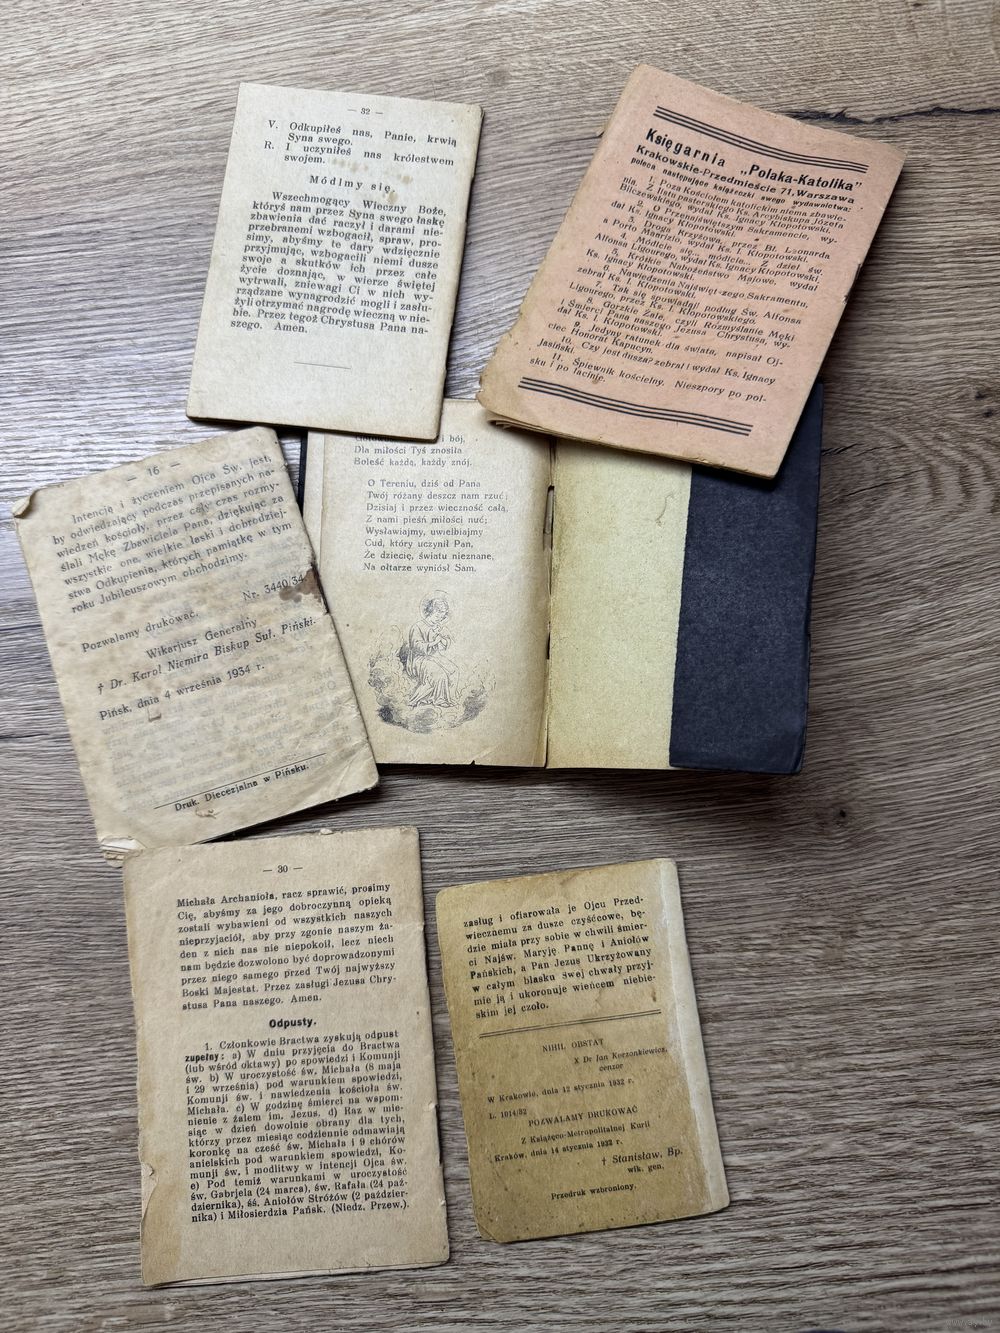 — 32 —
V. Odkupiłeś nas, Panie, krwią
Syna swego.
R. I uczyniłeś nas królestwem
swojem.
Módlmy się.
Wszechmogący Wieczny Boże,
któryś nam przez Syna swego łaskę
zbawienia dać raczył i darami nie-
przebranemi wzbogacił, spraw, pro-
simy, abyśmy te dary wdzięcznie
przyjmując, wzbogacili niemi dusze
swoje a skutków ich przez całe
życie doznając, w wierze świętej
wytrwali, zniewagi Ci w nich wy-
rządzane wynagrodzić mogli i zasłu-
żyli otrzymać nagrodę wieczną w nie-
bie. Przez tegoż Chrystusa Pana na-
szego. Amen.
Księgarnia „Polaka-Katolika”
Krakowskie-Przedmieście 71, Warszawa
poleca następujące książeczki swego wydawnictwa:
1. Poza Kościołem katolickim niema zbawie-
nia. Z listu pasterskiego Ks. Arcybiskupa Józefa
Bilczewskiego, wydał Ks. Ignacy Kłopotowski.
2. O Przenajświętszym Sakramencie, wy-
dał Ks. Ignacy Kłopotowski.
3. Droga krzyżowa, przez Bł. Leonarda
a Porto Maurizio, wydał Ks. I. Kłopotowski.
4. Módlcie się... módlcie. Z dzieł św.
Alfonsa Ligourego, wydał Ks. Ignacy Kłopotowski.
5. Krótkie Nabożeństwo Majowe, wydał
Ks. Ignacy Kłopotowski.
6. Nawiedzenia Najświęt-zego Sakramentu,
zebrał Ks. I. Kłopotowski.
7. Tak się spowiadali podług Św. Alfonsa
Ligourego, przez Ks. I. Kłopotowskiego.
8. Gorzkie Żale, czyli Rozmyślanie Męki
i Śmierci Pana naszego Jezusa Chrystusa, wy-
dał Ks. I. Kłopotowski.
9. Jedyny ratunek dla świata, napisał Oj-
ciec Honorat Kapucyn.
10. Czy jest dusza? zebrał i wydał Ks. Ignacy
Jasiński.
11. Śpiewnik kościelny. Nieszpory po pol-
sku i po łacinie.
i bój,
Dla miłości Tyś znosiła
Boleść każdą, każdy znój.
O Tereniu, dziś od Pana
Twój różany deszcz nam rzuć;
Dzisiaj i przez wieczność całą,
Z nami pieśń miłości nuć;
Wysławiajmy, uwielbiajmy
Cud, który uczynił Pan,
Że dziecię, światu nieznane,
Na ołtarze wyniósł Sam.
— 16 —
Intencją i życzeniem Ojca Św. jest,
by odwiedzający podczas przepisanych na-
wiedzeń kościoły, przez cały czas rozmy-
ślali Mękę Zbawiciela Pana, dziękując za
wszystkie one, wielkie łaski i dobrodziej-
stwa Odkupienia, których pamiątkę w tym
roku Jubileuszowym obchodzimy.
Nr. 3440/34
Pozwalamy drukować.
Wikarjusz Generalny
† Dr. Karol Niemira Biskup Suf. Piński.
Pińsk, dnia 4 września 1934 r.
Druk. Diecezjalna w Pińsku.
— 30 —
Michała Archanioła, racz sprawić, prosimy
Cię, abyśmy za jego dobroczynną opieką
zostali wybawieni od wszystkich naszych
nieprzyjaciół, aby przy zgonie naszym ża-
den z nich nas nie niepokoił, lecz niech
nam będzie dozwolono być doprowadzonymi
przez niego samego przed Twój najwyższy
Boski Majestat. Przez zasługi Jezusa Chry-
stusa Pana naszego. Amen.
Odpusty.
1. Członkowie Bractwa zyskują odpust
zupełny: a) W dniu przyjęcia do Bractwa
(lub wśród oktawy) po spowiedzi i Komunji
św. b) W uroczystość św. Michała (8 maja
i 29 września) pod warunkiem spowiedzi,
Komunji św. i nawiedzenia kościoła św.
Michała. c) W godzinę śmierci na wspom-
nienie z żalem im. Jezus. d) Raz w mie-
siąc w dzień dowolnie obrany dla tych,
którzy przez miesiąc codziennie odmawiają
koronkę na cześć św. Michała i 9 chórów
anielskich pod warunkiem spowiedzi, Ko-
munji św. i modlitwy w intencji Ojca św.
e) Pod temiż warunkami w uroczystość
św. Gabrjela (24 marca), św. Rafała (24 paź-
dziernika), śś. Aniołów Stróżów (2 paździer-
nika) i Miłosierdzia Pańsk. (Niedz. Przew.).
zasług i ofiarowała je Ojcu Przed-
wiecznemu za dusze czyśćcowe, bę-
dzie miała przy sobie w chwili śmier-
ci Najśw. Maryję Pannę i Aniołów
Pańskich, a Pan Jezus Ukrzyżowany
w całym blasku swej chwały przyj-
mie ją i ukoronuje wieńcem niebie-
skim jej czoło.
NIHIL OBSTAT
X Dr Jan Korzonkiewicz,
cenzor
W Krakowie, dnia 12 stycznia 1932 r.
L. 1014/32
POZWALAMY DRUKOWAĆ
Z Książęco-Metropolitalnej Kurii
Kraków, dnia 14 stycznia 1932 r.
† Stanisław, Bp.
wik. gen.
Przedruk wzbroniony.